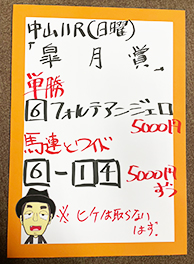 中山11R(日曜)
皐月賞
単勝
6 フォルテアンジェロ
5000円
馬連とワイド
6-14
5000円
ずつ
※ヒケは取らない
はず。